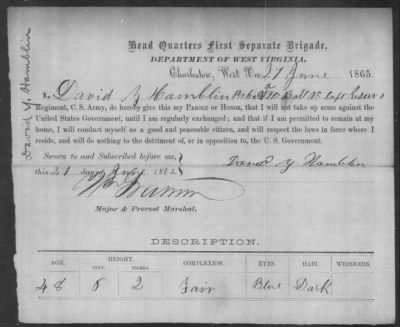 David Y. Hamblin
Head Quarters First Separate Brigade,
DEPARTMENT OF WEST VIRGINIA,
Charleston, West Va. 21 June 1865.
I, David Y Hamblin
Regiment, U.S. Army, do hereby give this my PAROLE OF HONOR, that I will not take up arms against the
United States Government, until I am regularly exchanged; and that if I am permitted to remain at my
home, I will conduct myself as a good and peaceable citizen, and will respect the laws in force where I
reside, and will do nothing to the detriment of, or in opposition to, the U. S. Government.
Sworn to and Subscribed before me,
David Y Hamblin
this 21 day of June 1865.
Major & Provost Marshal.
DESCRIPTION.
AGE. HEIGHT. COMPLEXION. EYES. HAIR. WHISKERS.
FEET. INCHES.
48 6 2 Fair Blue Dark